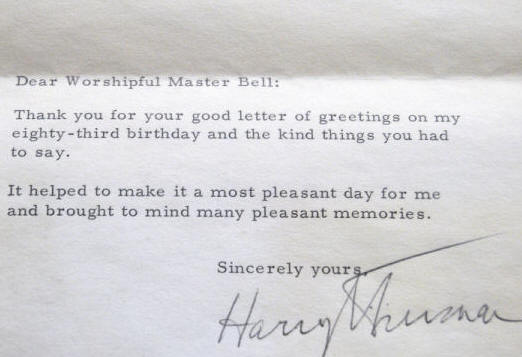 Dear Worshipful Master Bell:
Thank you for your good letter of greetings on my
eighty-third birthday and the kind things you had
to say.
It helped to make it a most pleasant day for me
and brought to mind many pleasant memories.
Sincerely yours,
Harry Truman